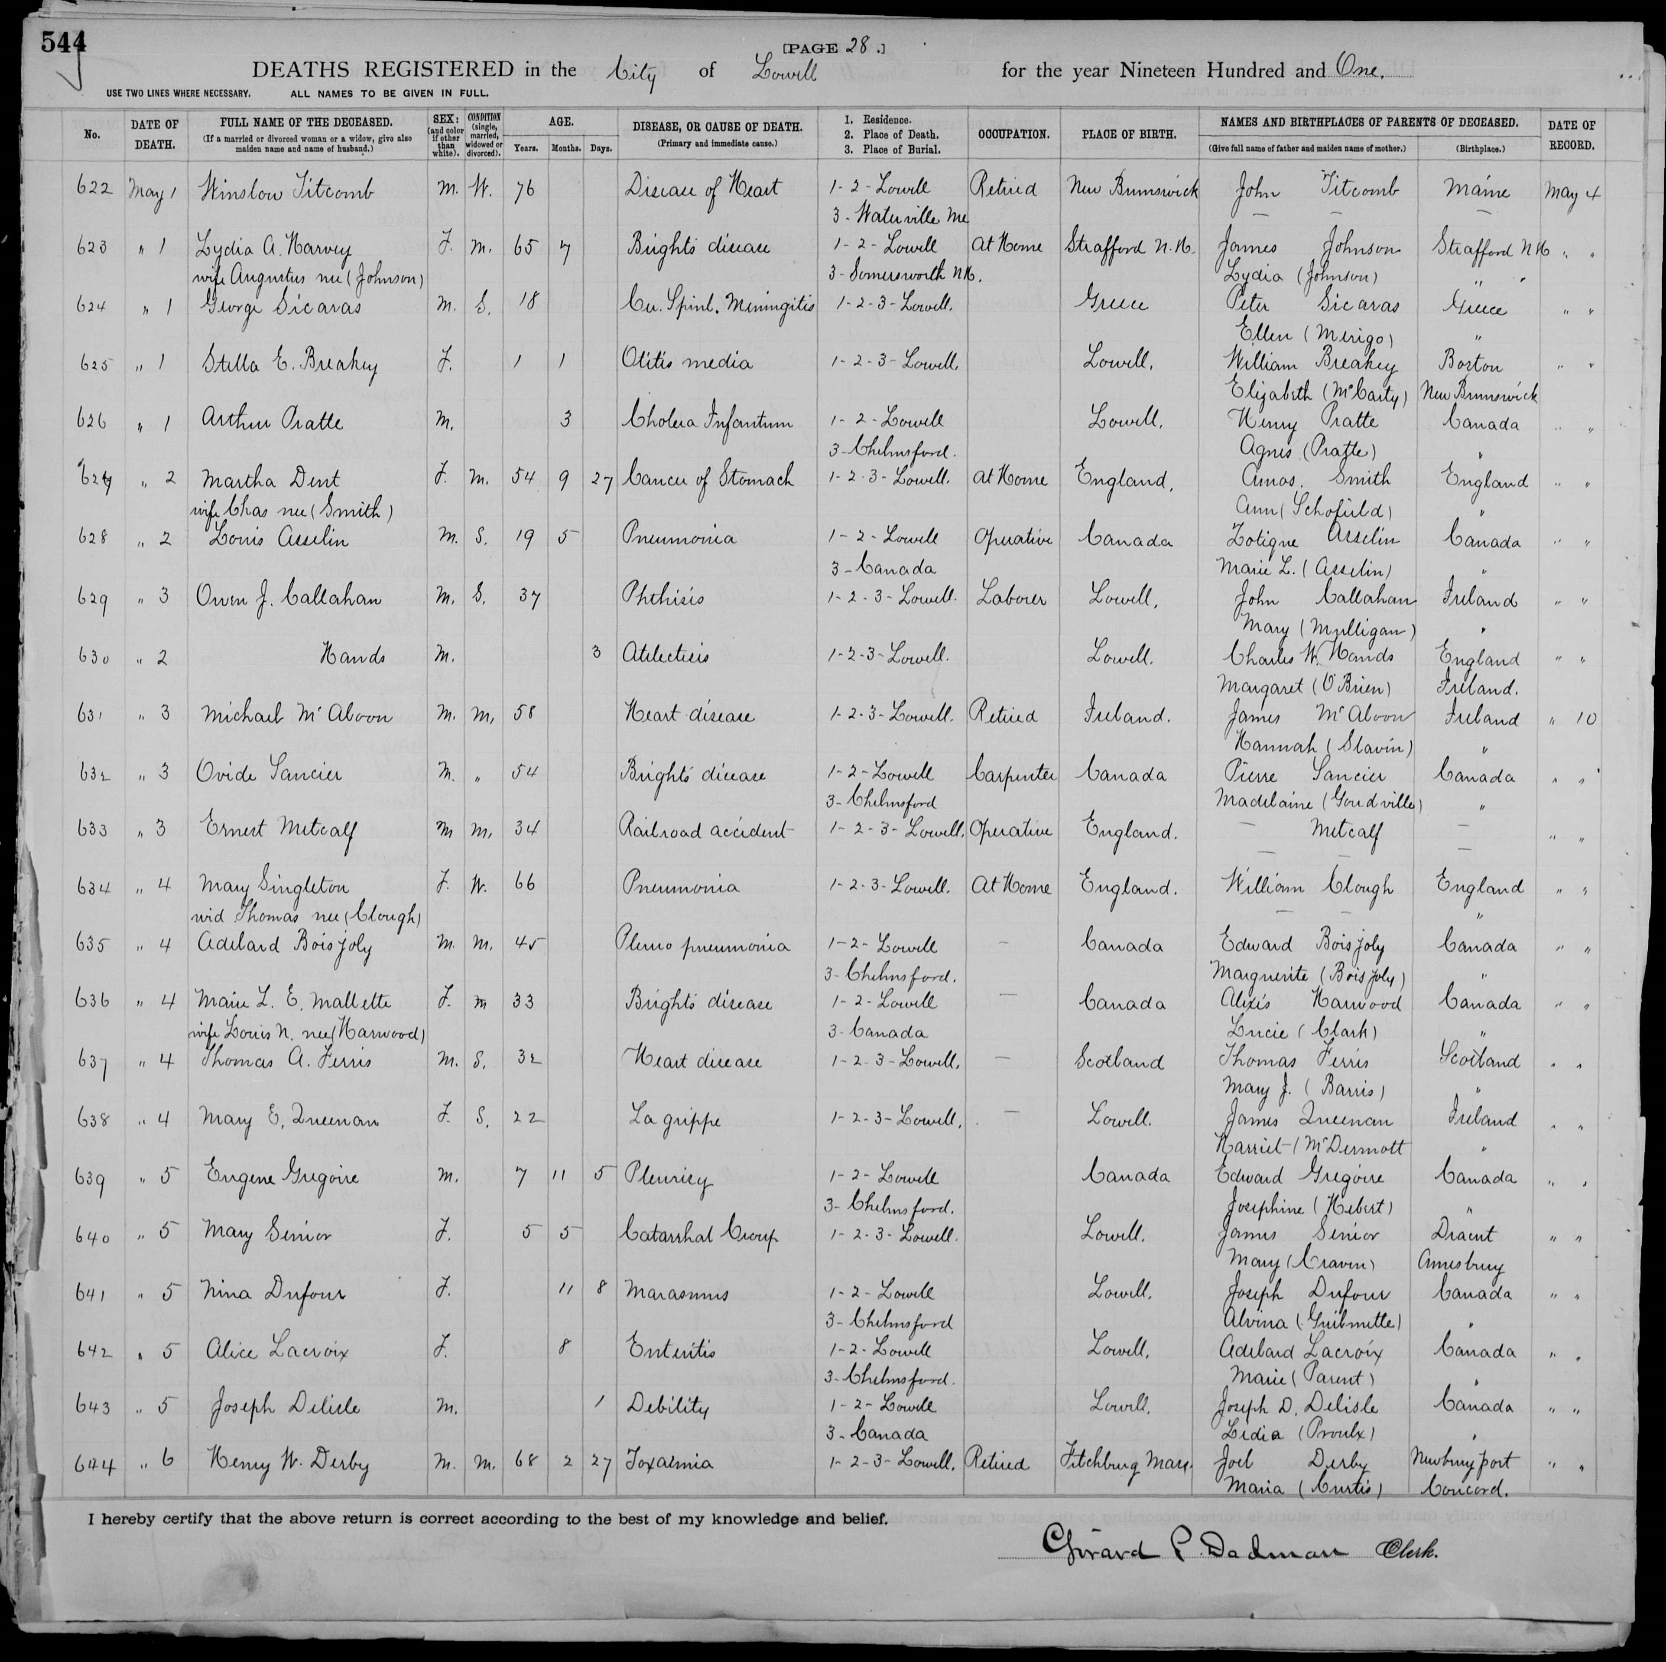 544
[PAGE 28.]
DEATHS REGISTERED in the City of Lowell for the year Nineteen Hundred and One.
USE TWO LINES WHERE NECESSARY. ALL NAMES TO BE GIVEN IN FULL.
No.
DATE OF DEATH.
FULL NAME OF THE DECEASED.
(If a married or divorced woman or a widow, give also maiden name and name of husband.)
SEX: (and color if other than white).
CONDITION (single, married, widowed or divorced).
AGE.
Years. Months. Days.
DISEASE, OR CAUSE OF DEATH.
(Primary and immediate cause.)
1. Residence.
2. Place of Death.
3. Place of Burial.
OCCUPATION.
PLACE OF BIRTH.
NAMES AND BIRTHPLACES OF PARENTS OF DECEASED.
(Give full name of father and maiden name of mother.) (Birthplace.)
DATE OF RECORD.
622 May 1 Winslow Titcomb M. W. 76 Disease of Heart 1-2-Lowell Retired New Brunswick John Titcomb Maine May 4
3-Waterville Me — — —
623 " 1 Lydia A. Harvey F. M. 65 7 Brights disease 1-2-Lowell At Home Strafford N.H. James Johnson Strafford N.H. " "
wife Augustus nee (Johnson) 3-Somersworth N.H. Lydia (Johnson) " "
624 " 1 George Sicaras M. S. 18 Ce. Spinl. Meningitis 1-2-3-Lowell. Greece Peter Sicaras Greece " "
Ellen (Merigo) "
625 " 1 Stella E. Breakey F. 1 1 Otitis media 1-2-3-Lowell. Lowell. William Breakey Boston " "
Elizabeth (McCarty) New Brunswick
626 " 1 Arthur Pratte M. 3 Cholera Infantum 1-2-Lowell Lowell. Henry Pratte Canada " "
3-Chelmsford. Agnes (Pratte) "
627 " 2 Martha Dent F. M. 54 9 27 Cancer of Stomach 1-2-3-Lowell. At Home England. Amos. Smith England " "
wife Chas nee (Smith) Ann (Schofield) "
628 " 2 Louis Asselin M. S. 19 5 Pneumonia 1-2-Lowell Operative Canada Zotique Asselin Canada " "
3-Canada Marie L. (Asselin) "
629 " 3 Owen J. Callahan M. S. 37 Phthisis 1-2-3-Lowell. Laborer Lowell. John Callahan Ireland " "
Mary (Mulligan) "
630 " 2 Hands M. 3 Atilectisis 1-2-3-Lowell. Lowell. Charles W. Hands England " "
Margaret (O'Brien) Ireland.
631 " 3 Michael McAloon M. M. 58 Heart disease 1-2-3-Lowell. Retired Ireland. James McAloon Ireland " 10
Hannah (Slavin) "
632 " 3 Ovide Sancier M. " 54 Brights disease 1-2-Lowell Carpenter Canada Pierre Sancier Canada " "
3-Chelmsford Madelaine (Goudville) "
633 " 3 Ernest Metcalf M M. 34 Railroad accident 1-2-3-Lowell. Operative England. — Metcalf — " "
— — —
634 " 4 Mary Singleton F. W. 66 Pneumonia 1-2-3-Lowell. At Home England. William Clough England " "
wid Thomas nee (Clough) — — "
635 " 4 Adelard Boisjoly M. M. 45 Pleuro pneumonia 1-2-Lowell — Canada Edward Boisjoly Canada " "
3-Chelmsford. Marguerite (Boisjoly) "
636 " 4 Marie L. E. Mallette F. M 33 Brights disease 1-2-Lowell — Canada Alixis Harwood Canada " "
wife Louis N. nee (Harwood) 3-Canada Lucie (Clark) "
637 " 4 Thomas A. Ferris M. S. 32 Heart disease 1-2-3-Lowell. — Scotland Thomas Ferris Scotland " "
Mary J. (Barris) "
638 " 4 Mary E. Queenan F. S. 22 La grippe 1-2-3-Lowell. — Lowell. James Queenan Ireland " "
Harriet (McDermott "
639 " 5 Eugene Gregoire M. 7 11 5 Pleurisy 1-2-Lowell Canada Edward Gregoire Canada " "
3-Chelmsford. Josephine (Hebert) "
640 " 5 Mary Senior F. 5 5 Catarrhal Croup 1-2-3-Lowell. Lowell. James Senior Dracut " "
Mary (Craven) Amesbury
641 " 5 Nina Dufour F. 11 8 Marasmus 1-2-Lowell Lowell. Joseph Dufour Canada " "
3-Chelmsford Alvina (Guilmette) "
642 " 5 Alice Lacroix F. 8 Enteritis 1-2-Lowell Lowell. Adelard Lacroix Canada " "
3-Chelmsford. Marie (Parent) "
643 " 5 Joseph Delisle M. 1 Debility 1-2-Lowell Lowell. Joseph D. Delisle Canada " "
3-Canada Lidia (Proulx) "
644 " 6 Henry W. Derby M. M. 68 2 27 Toxaemia 1-2-3-Lowell. Retired Fitchburg Mass. Joel Derby Newburyport " "
Maria (Curtis) Concord.
I hereby certify that the above return is correct according to the best of my knowledge and belief.
Girard P. Dadman Clerk.